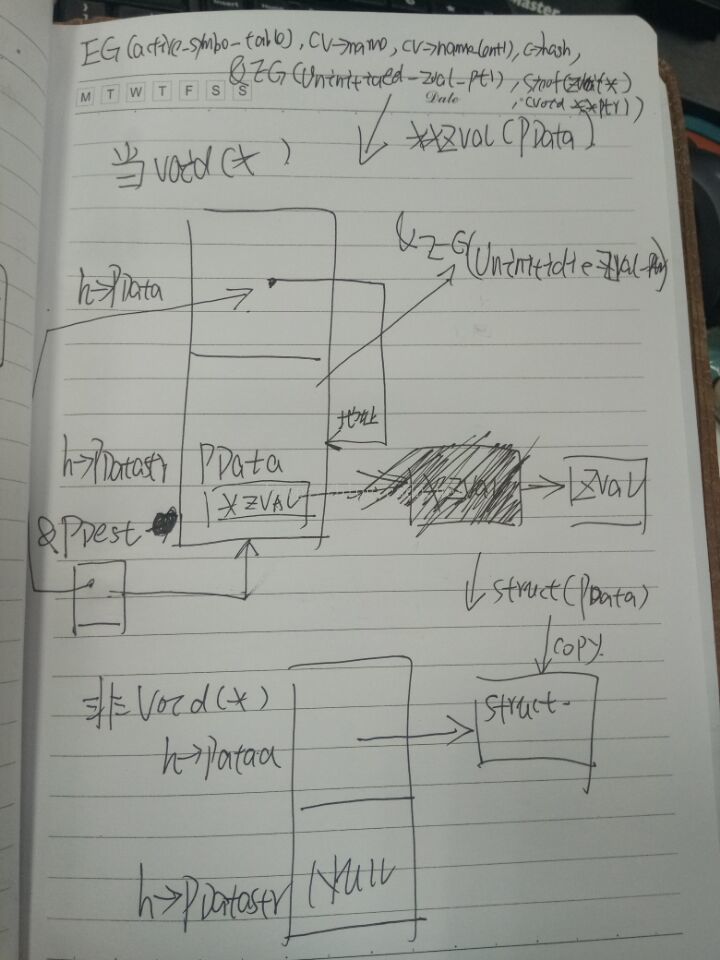 EG(active-symbo-table), CV->name, CV->name(ent1), c->hash,
&ZG(Uninitialied-zval-ptr), sizeof(zval*)
,(void **ptr))
M T W T F S S
Date
**zval(PData)
当void(*)
&ZG(Uninitidie-zval-ptr)
h->PData
地址
h->PDatastr
PData
*ZVAL
*zval
zval
&PDest
struct(PData)
copy.
非Void(*)
struct-
h->Pataa
h->PDatastr
NULL